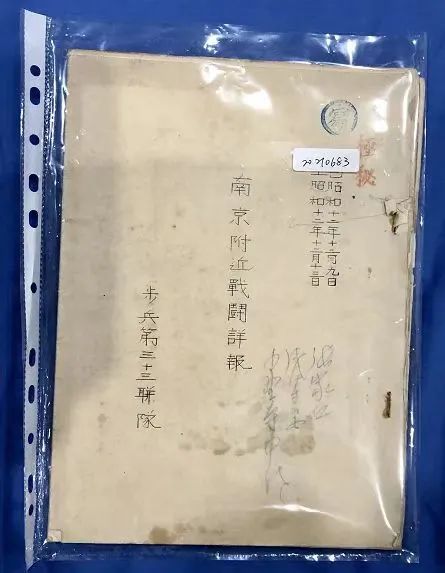 寫
極秘
昭和十二年十二月九日
昭和十二年十二月十三日
南京附近戰鬪詳報
步兵第三十三聯隊